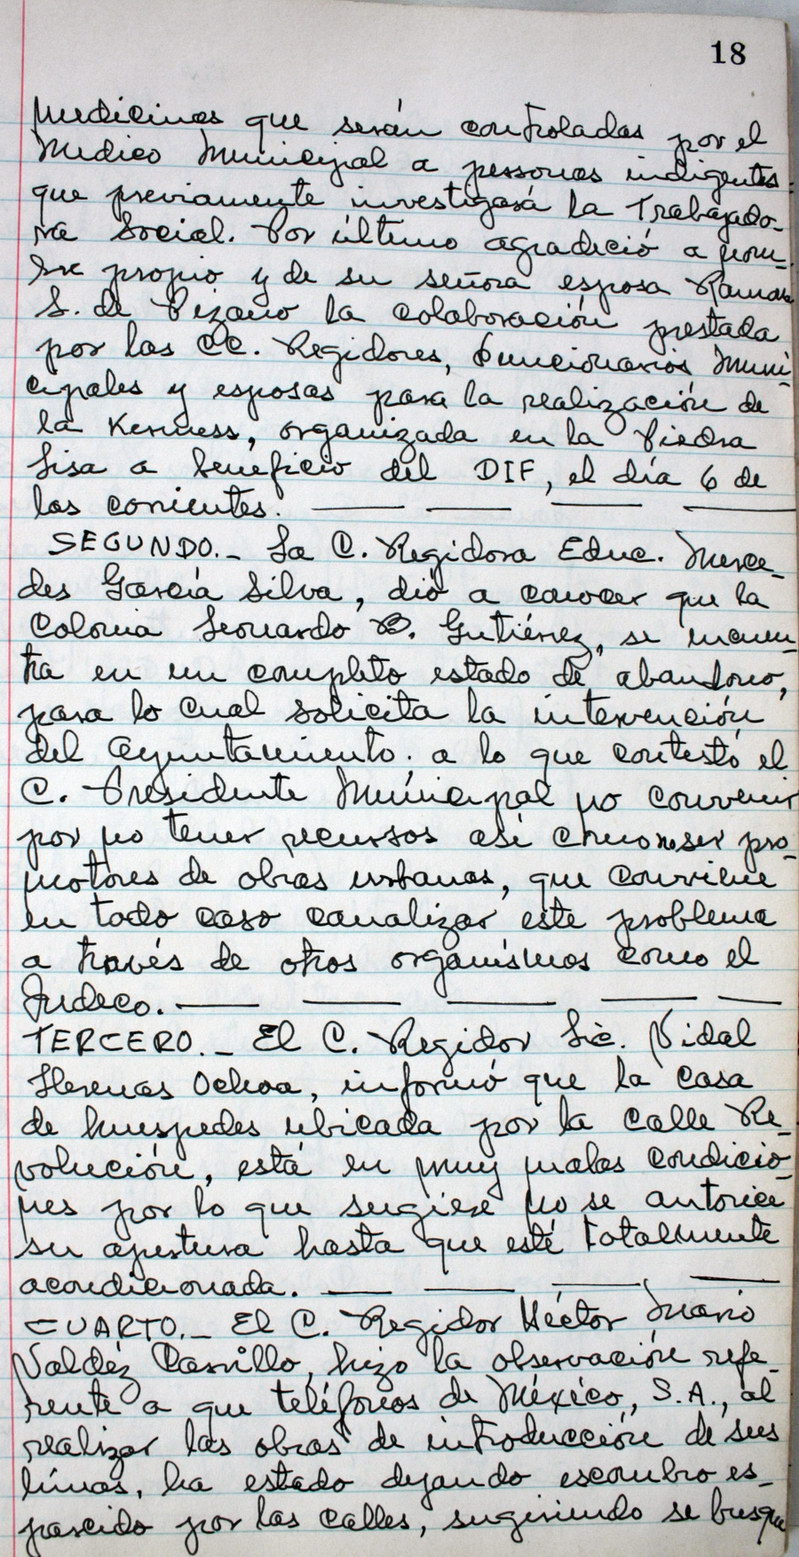 18
medicinas que serán controladas por el
Médico Municipal a personas indigentes
que previamente investigará la Trabajado-
ra Social. Por último agradeció a nom-
bre propio y de su señora esposa Ramona
S. de Pizano la colaboración prestada
por los CC. Regidores, funcionarios Muni-
cipales y esposas para la realización de
la Kermess, organizada en la Piedra
Lisa a beneficio del DIF, el día 6 de
los corrientes
SEGUNDO.- La C. Regidora Educ. Merce-
des García Silva, dió a conocer que la
Colonia Leonardo B. Gutiérrez, se encuen-
tra en un completo estado de abandono,
para lo cual solicita la intervención
del Ayuntamiento. a lo que contestó el
C. Presidente Municipal no convenir
por no tener recursos así como ser pro-
motores de obras urbanas, que conviene
en todo caso canalizar este problema
a través de otros organísmos como el
Judeco.
TERCERO.- El C. Regidor Lic. Vidal
Llerenas Ochoa, informó que la casa
de huespedes ubicada por la calle Re-
volución, está en muy malas condicio-
nes por lo que sugiere no se autorice
su apertura hasta que esté totalmente
acondicionada.
CUARTO.- El C. Regidor Héctor Mario
Valdéz Carrillo, hizo la observación refe-
rente a que teléfonos de México, S.A., al
realizar las obras de introducción de sus
líneas, ha estado dejando escombro es-
parcido por las calles, sugiriendo se busque